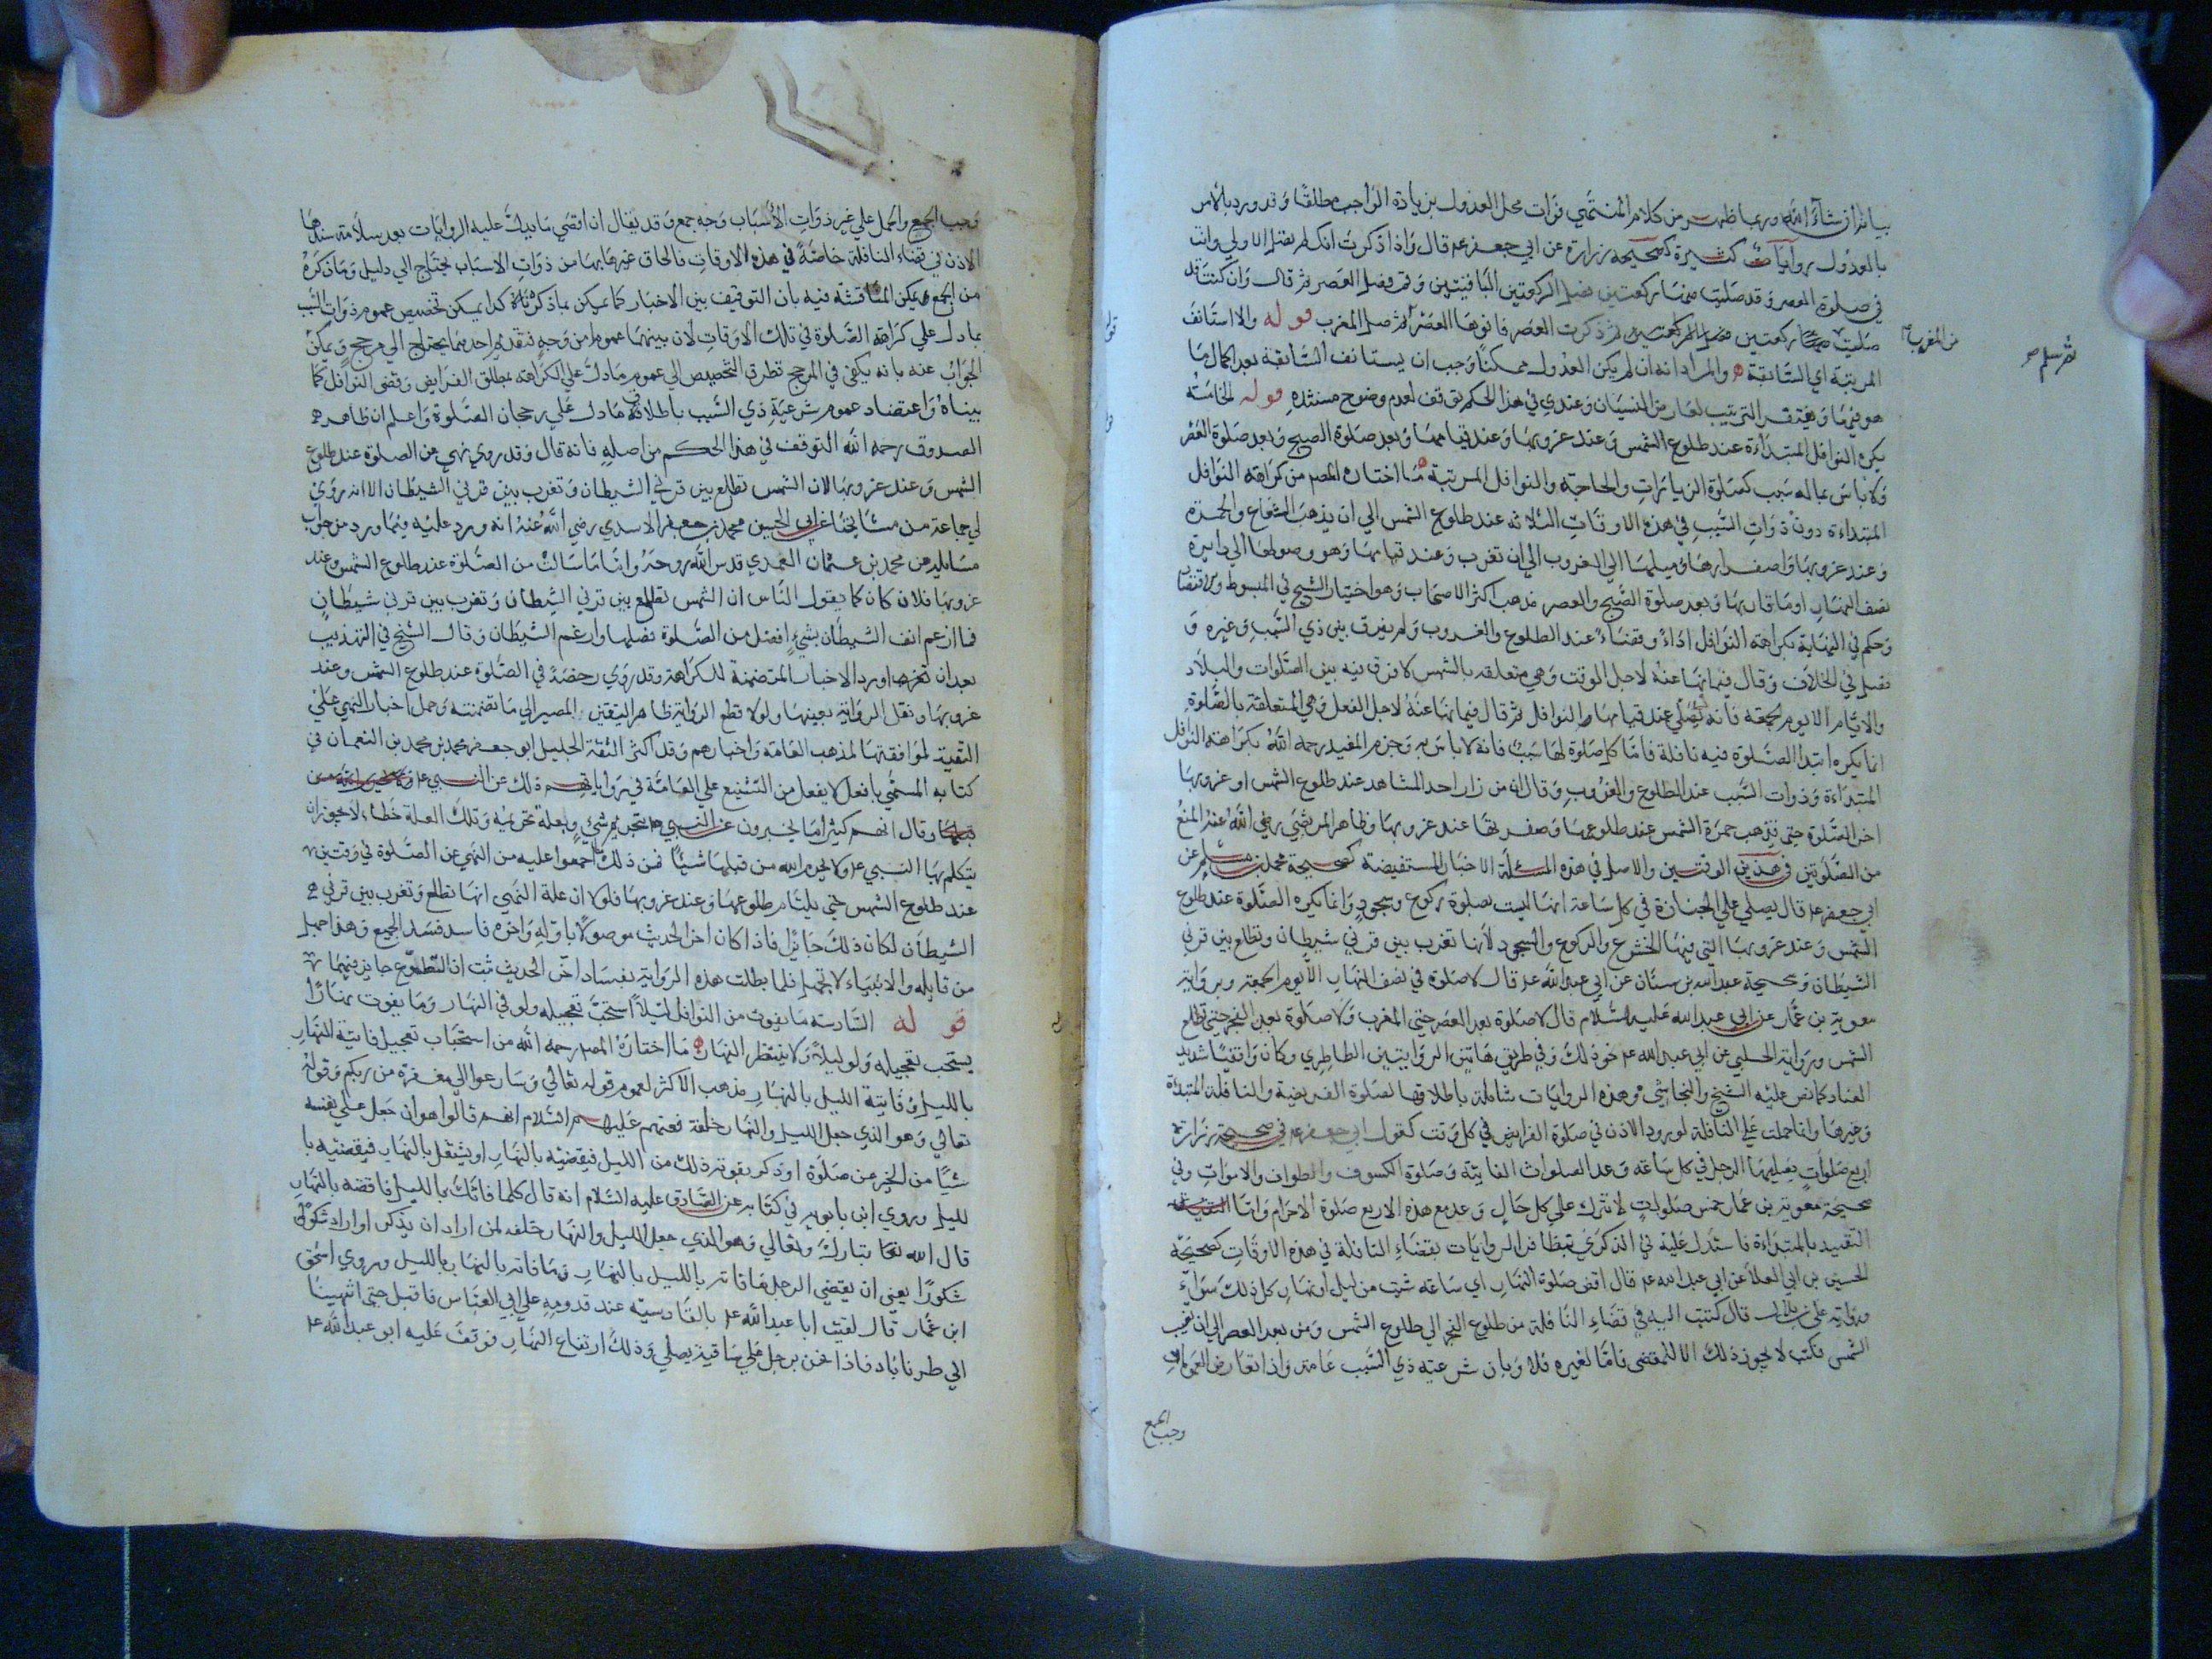 بيانه ان شاء الله وربما ظهر من كلام المنتهى فوات محل العدول بزيادة الواجب مطلقا وقد ورد بالامر
بالعدول روايات كثيرة كصحيحة زرارة عن ابي جعفر عم قال واذا ذكرت انك لم تصل الاولى وانت
في صلوة العصر وقد صليت منها ركعتين فصل الركعتين الباقيتين وقم فصل العصر ثم قال وان كنت قد
صليت من المغرب ركعتين ثم ذكرت العصر فانوها العصر ثم سلم ثم صل المغرب قوله والا استانف
المرتبة اي السابقة والمراد انه ان لم يكن العدول ممكنا وجب ان يستانف السابقة بعد اكمال ما
هو فيها ويغتفر الترتيب لعارض النسيان وعندي في هذا الحكم توقف لعدم وضوح مستنده قوله الخامسة
يكره النوافل المبتداءة عند طلوع الشمس وعند غروبها وعند قيامها وبعد صلوة الصبح وبعد صلوة العصر
ولا باس بما له سبب كصلوة الزيارات والحاجة والنوافل المرتبة ما اختاره المصر من كراهة النوافل
المبتداءة دون ذوات السبب في هذه الاوقات الثلاثه عند طلوع الشمس الي ان يذهب الشعاع والحمرة
وعند غروبها واصفرارها وميلها الي الغروب الي ان تغرب وعند قيامها وهو وصولها الي دايرة
نصف النهار او ما قاربها وبعد صلوة الصبح والعصر مذهب اكثر الاصحاب وهو اختيار الشيخ في المبسوط والاقتصاد
وحكم في النهاية بكراهة النوافل اداء وقضاء عند الطلوع والغروب ولم يفرق بين ذي السبب وغيره و
فصل في الخلاف وقال فيما نهى عنه لاجل الوقت وهي متعلقه بالشمس لا فرق فيه بين الصلوات والبلاد
والايام الا يوم الجمعه فانه يصلي عند قيامها النوافل ثم قال فيما نهى عنه لاجل الفعل وهي المتعلقة بالصلوة
انما يكره ابتدا الصلوة فيه نافلة فاما كل صلوة لها سبب فانه لا باس به وجزم المفيد رحمه الله بكراهة النوافل
المبتداءة وذوات السبب عند الطلوع والغروب وقال ان من زار احد المشاهد عند طلوع الشمس او غروبها
اخر الصلوة حتى تذهب حمرة الشمس عند طلوعها وصفرتها عند غروبها وظاهر المرتضى رضي الله عنه المنع
من الصلوتين في هذين الوقتين والاصل في هذه المسئلة الاخبار المستفيضة كصحيحة محمد بن مسلم عن
ابي جعفر عم قال يصلي علي الجنازة في كل ساعة انها ليست بصلوة ركوع وسجود وانما يكره الصلوة عند طلوع
الشمس وعند غروبها التي فيها الخشوع والركوع والسجود لانها تغرب بين قرني شيطان وتطلع بين قرني
الشيطان وصحيحة عبدالله بن سنان عن ابي عبد الله عم قال لا صلوة في نصف النهار الا يوم الجمعة ورواية
معوية بن عمار عن ابي عبدالله عليه السلام قال لا صلوة بعد العصر حتى المغرب ولا صلوة بعد الفجر حتى تطلع
الشمس ورواية الحلبي عن ابي عبد الله عم نحو ذلك وفي طريق هاتين الروايتين الطاطري وكان واقفيا شديد
العناد كما نص عليه الشيخ والنجاشي وهذه الروايات شاملة باطلاقها لصلوة الفريضة والنافلة المبتداة
وغيرها وانما حملت علي النافلة لورود الاذن في صلوة الفرايض في كل وقت كقول ابي جعفر عم في صحيحة زرارة
اربع صلوات يصليها الرجل في كل ساعة وعد الصلوات الفايتة وصلوة الكسوف والطواف والاموات وفي
صحيحة معوية بن عمار خمس صلوات لا تترك علي كل حال وعد مع هذه الاربع صلوة الاحرام واما
التقييد بالمبتداءة فاستدل عليه في الذكرى بتظافر الروايات بقضاء النافلة في هذه الاوقات كصحيحة
الحسين بن ابي العلا عن ابي عبد الله عم قال اقض صلوة النهار اي ساعة شئت من ليل او نهار كل ذلك سواء
ورواية علي بن بلال قال كتبت اليه في قضاء النافلة من طلوع الفجر الي طلوع الشمس ومن بعد العصر الي ان تغيب
الشمس فكتب لا يجوز ذلك الا للمقتضي فاما لغيره فلا وبان شرعية ذي السبب عامة واذا تعارض العمومان
وجب الجمع
وجب الجمع والحمل علي غير ذوات الاسباب وجه جمع وقد يقال ان اقصى ما يدل عليه الروايات بعد سلامة سندها
الاذن في قضاء النافلة خاصة في هذه الاوقات فالحاق غيرها بها من ذوات الاسباب يحتاج الي دليل وما ذكره
من الجمع يمكن المناقشة فيه بان التوفيق بين الاخبار كما يمكن بما ذكر كذا يمكن تخصيص عموم ذوات السبب
بما دل علي كراهة الصلوة في تلك الاوقات لان بينهما عموما من وجه فتقديم احدهما يحتاج الي مرجح ويمكن
الجواب عنه بانه يكفي في المرجح تطرق التخصيص الي عموم ما دل علي الكراهة بمطلق الفرايض وقضى النوافل كما
بيناه واعتضاد عموم شرعية ذي السبب باطلاق ما دل علي رجحان الصلوة واعلم ان ظاهر
الصدوق رحمه الله التوقف في هذا الحكم من اصله فانه قال وقد روي نهي عن الصلوة عند طلوع
الشمس وعند غروبها لان الشمس تطلع بين قرني الشيطان وتغرب بين قرني الشيطان الا انه روى
لي جماعة من مشايخنا عن ابي الحسين محمد بن جعفر الاسدي رضي الله عنه انه ورد عليه فيما ورد من جواب
مسايله عن محمد بن عثمان العمري قدس الله روحه واما ما سالت من الصلوة عند طلوع الشمس وعند
غروبها فلان كان كما يقول الناس ان الشمس تطلع بين قرني الشيطان وتغرب بين قرني شيطان
فما ارغم انف الشيطان بشيء افضل من الصلوة فصلها وارغم الشيطان وقال الشيخ في التهذيب
بعد ان اورد الاخبار المتضمنة للكراهة وقد روي رخصة في الصلوة عند طلوع الشمس وعند
غروبها ونقل الرواية بعينها ولولا قطع الرواية ظاهرا ليقين المصير الي ما تضمنته وحمل اخبار النهي علي
التقية لموافقتها لمذهب العامة واخبارهم وقد اكثر الثقة الجليل ابو جعفر محمد بن محمد بن النعمان في
كتابه المسمى بافعل لا تفعل من التشنيع علي العامة في رواياتهم ذلك عن النبي عم
وقال انهم كثيرا ما يخبرون عن النبي عم بتحريم شيء وبعلة تحريمه وتلك العلة خطاء لا يجوز ان
يتكلم بها النبي عم ولا يحرم الله من قبلها شيئا فمن ذلك ما اجمعوا عليه من النهي عن الصلوة في وقتين
عند طلوع الشمس حتى يلتام طلوعها وعند غروبها فلولا ان علة النهي انها تطلع وتغرب بين قرني
الشيطان لكان ذلك جايزا فاذا كان اخر الحديث موصولا باوله واخره فاسد فسد الجميع وهذا جهل
من قايله والانبياء لا تجهل فلما بطلت هذه الرواية بفساد اخر الحديث ثبت ان التطوع جايز فيهما
قوله السادسة ما يفوت من النوافل ليلا استحب تعجيله ولو في النهار وما يفوت نهارا
يستحب تعجيله ولو ليلا ولا ينتظر النهار ما اختاره المصر رحمه الله من استحباب تعجيل فايتة النهار
بالليل وفايتة الليل بالنهار مذهب الاكثر لعموم قوله تعالي وسارعوا الي مغفرة من ربكم وقوله
تعالي وهو الذي جعل الليل والنهار خلفة فعنهم عليهم السلام انهم قالوا هو ان جعل علي نفسه
شيئا من الخير من صلوة او ذكر يفوته ذلك من الليل فيقضيه بالنهار او يشتغل بالنهار فيقضيه با
لليل وروي ابن بابويه في كتابه عن الصادق عليه السلام انه قال كلما فاتك بالليل فاقضه بالنهار
قال الله تبارك وتعالي وهو الذي جعل الليل والنهار خلفه لمن اراد ان يذكر او اراد شكورا
شكورا يعني ان يقضي الرجل ما فاته بالليل بالنهار وما فاته بالنهار بالليل وروي اسحق
ابن عمار قال لقيت ابا عبد الله عم بالقادسية عند قدومه علي ابي العباس فاقبل حتى انتهينا
الي طرناباد فاذا نحن برجل علي ساقية يصلي وذلك ارتفاع النهار فوقف عليه ابو عبد الله عم